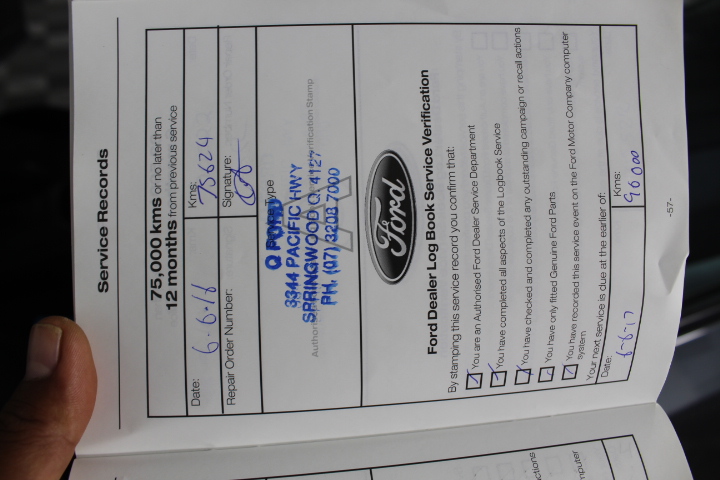 Service Records
75,000 kms or no later than
12 months from previous service
Date: 6.6.16 Kms: 75624
Repair Order Number: Signature:
Type
Q FORD
3344 PACIFIC HWY
SPRINGWOOD Q. 4127
PH. (07) 3208 7000
Ford
Ford Dealer Log Book Service Verification
By stamping this service record you confirm that:
You are an Authorised Ford Dealer Service Department
You have completed all aspects of the Logbook Service
You have checked and completed any outstanding campaign or recall actions
You have only fitted Genuine Ford Parts
You have recorded this service event on the Ford Motor Company computer
system
Your next service is due at the earlier of:
Date: 6-6-17 Kms: 90000
-57-
ctions
mputer